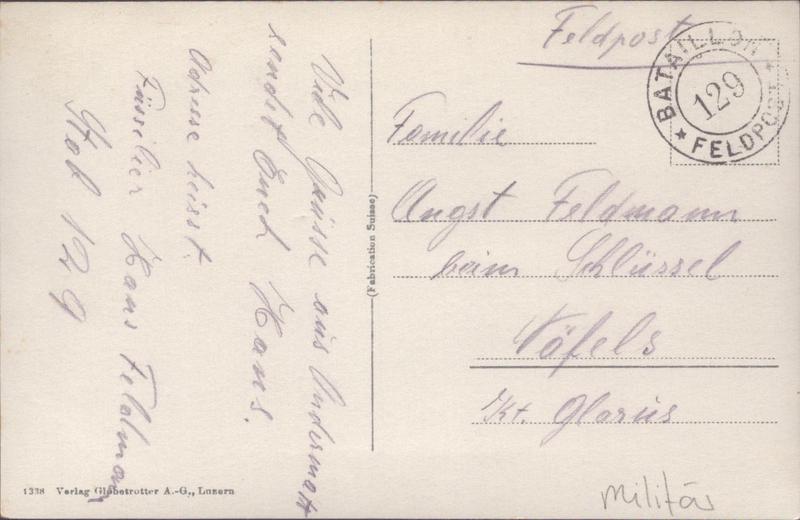 Viele Grüsse aus Andermatt
sendet Euch Hans.
Adresse heisst.
Füsilier Hans Feldmann
Stab 129
(Fabrication Suisse)
Feldpost
BATAILLON
129
★ FELDPOST ★
Familie
Angst Feldmann
beim Schlüssel
Näfels
Kt. Glarus
1338 Verlag Globetrotter A.-G., Luzern
Militär